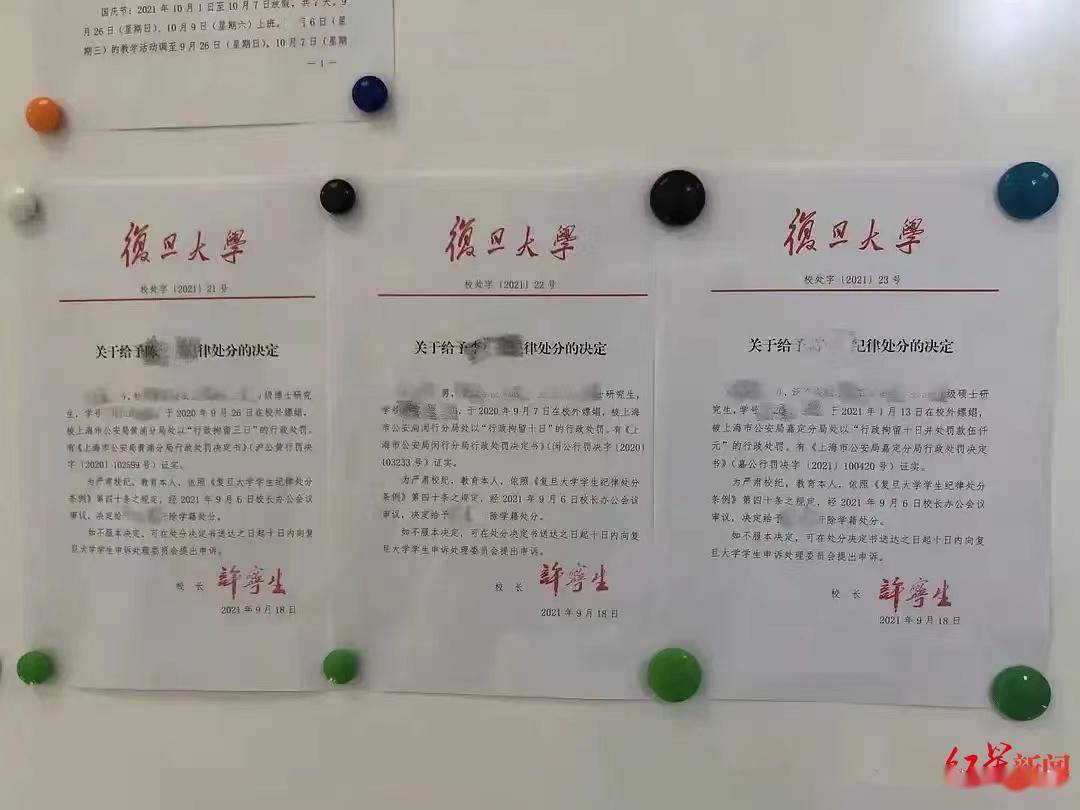 国庆节：2021年10月1日至10月7日放假，共7天。9
月26日（星期日）、10月9日（星期六）上班。 6日（星
期三）的教学活动调至9月26日（星期日），10月7日（星期
—1—
復旦大學
校处字〔2021〕21号
关于给予陈 律处分的决定
级博士研究
生，学号 于2020年9月26日在校外嫖娼，
被上海市公安局黄浦分局处以“行政拘留三日”的行政处罚。
有《上海市公安局黄浦分局行政处罚决定书》（沪公黄行罚决
字〔2020〕102599号）证实。
为严肃校纪，教育本人，依照《复旦大学学生纪律处分
条例》第四十条之规定，经2021年9月6日校长办公会议
审议，决定给 除学籍处分。
如不服本决定，可在处分决定书送达之日起十日内向复
旦大学学生申诉处理委员会提出申诉。
校 长 許寧生
2021年9月18日
復旦大學
校处字〔2021〕22号
关于给予李 律处分的决定
男， 士研究生，
学号 ，于2020年9月7日在校外嫖娼，被上
海市公安局闵行分局处以“行政拘留十日”的行政处罚。有《上
海市公安局闵行分局行政处罚决定书》（闵公行罚决字〔2020〕
103233号）证实。
为严肃校纪，教育本人，依照《复旦大学学生纪律处分
条例》第四十条之规定，经2021年9月6日校长办公会议
审议，决定给予 除学籍处分。
如不服本决定，可在处分决定书送达之日起十日内向复
旦大学学生申诉处理委员会提出申诉。
校 长 許寧生
2021年9月18日
復旦大學
校处字〔2021〕23号
关于给予 纪律处分的决定
级硕士研
究生，学号 于2021年1月13日在校外嫖娼，
被上海市公安局嘉定分局处以“行政拘留十日并处罚款伍仟
元”的行政处罚。有《上海市公安局嘉定分局行政处罚决定
书》（嘉公行罚决字〔2021〕100420号）证实。
为严肃校纪，教育本人，依照《复旦大学学生纪律处分
条例》第四十条之规定，经2021年9月6日校长办公会议
审议，决定给予 开除学籍处分。
如不服本决定，可在处分决定书送达之日起十日内向复
旦大学学生申诉处理委员会提出申诉。
校 长 許寧生
2021年9月18日
红星新闻